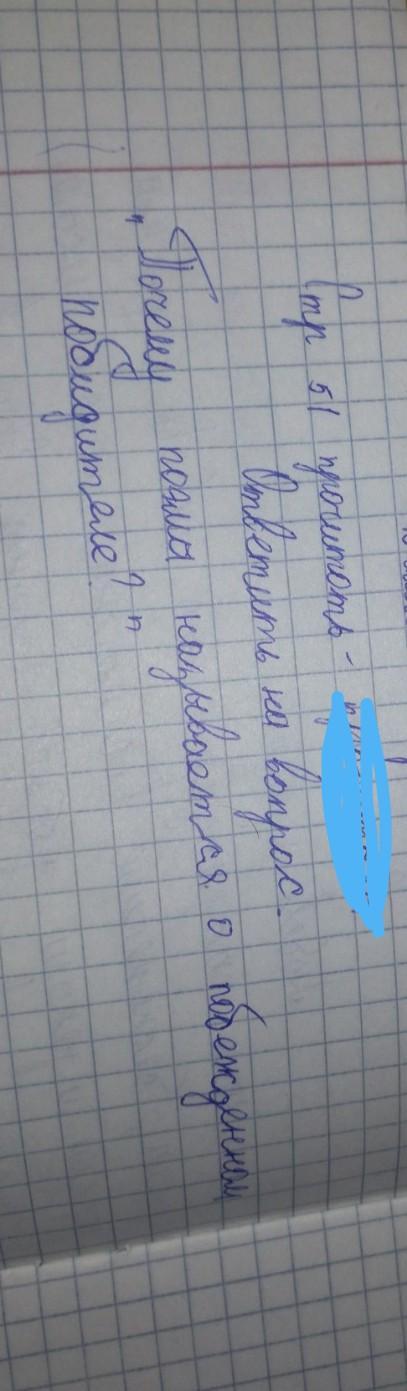 Стр 51 прочитать -
Ответить на вопрос.
„Почему поэма называется о побежденном
победителе?"